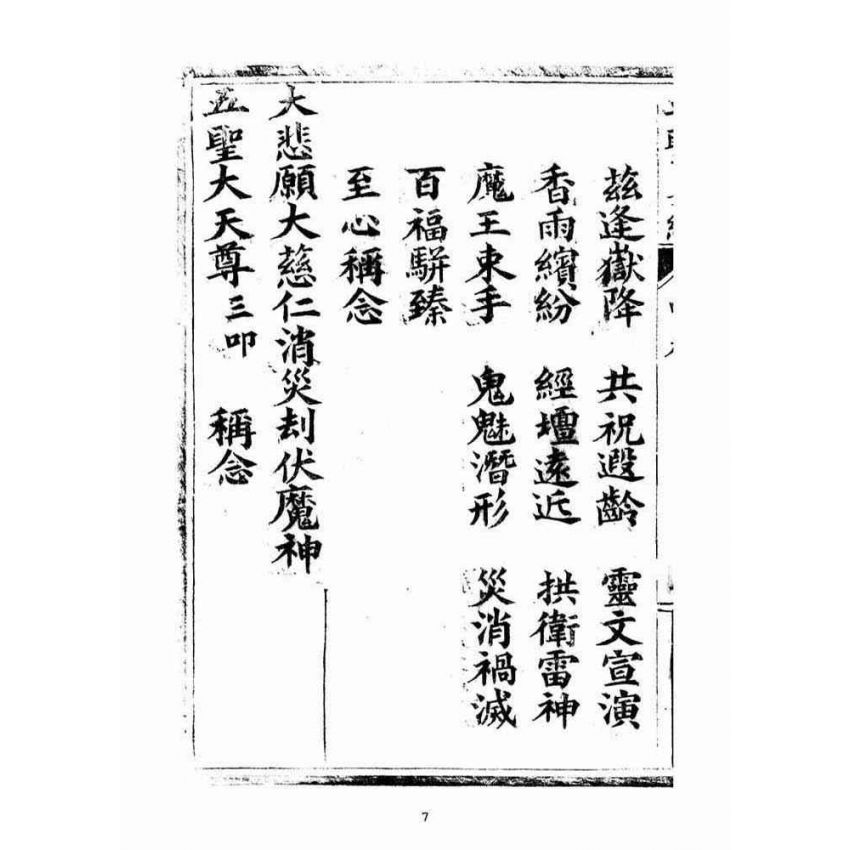 茲逢嶽降　共祝遐齡　靈文宣演
香雨繽紛　經壇遠近　拱衛雷神
魔王束手　鬼魅潛形　災消禍滅
百福駢臻
至心稱念
大悲願大慈仁消災刦伏魔神
五聖大天尊三叩　稱念
7